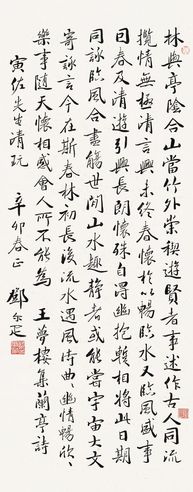 林與亭陰合山當竹外崇稧遊賢者事述作古人同流
攬情無極清言興未終春懷於以暢臨水又臨風感事
回春及清遊引興長朗懷殊自得幽抱輙相將此日期
同詠臨風合盡觴世閒山水趣靜者或能嘗宇宙大文
寄詠言今在斯春林初長後流水遇風時曲曲幽情暢欣欣
樂事隨天懷相感會人所不能為 王夢樓集蘭亭詩
寅佐先生清玩
辛卯春正 鄧爾疋